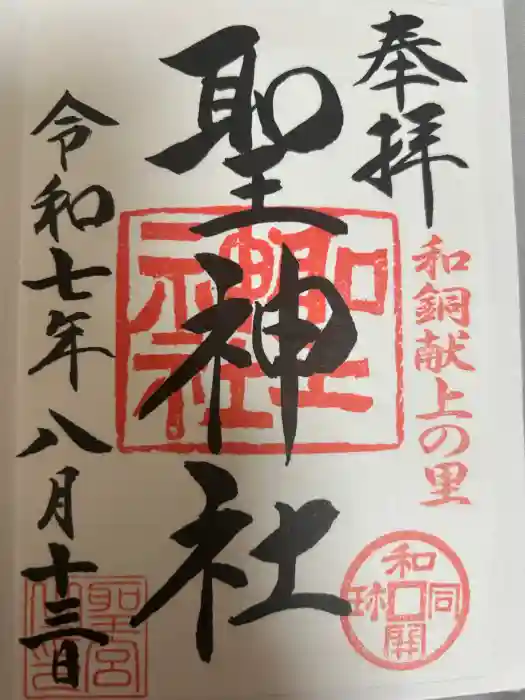 奉拝
和銅献上の里
和同開珎
聖神社
聖神社
令和七年八月十三日